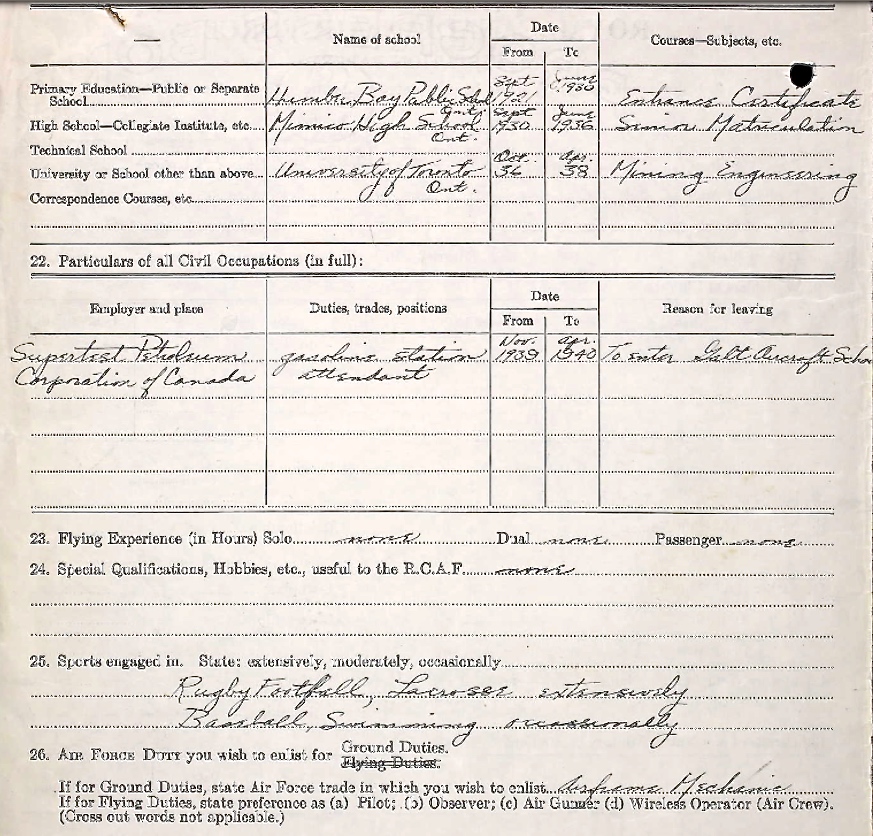 Date
Name of school
Courses—Subjects, etc.
From To
Primary Education—Public or Separate School Humber Bay Public School Ont. Sept 1921 June 1930 Entrance Certificate
High School—Collegiate Institute, etc. Mimico High School Ont. Sept 1930 June 1936 Senior Matriculation
Technical School
University or School other than above University of Toronto Ont. Oct. 36 Apr. 38 Mining Engineering
Correspondence Courses, etc.
22. Particulars of all Civil Occupations (in full):
Date
Employer and place Duties, trades, positions Reason for leaving
From To
Supertest Petroleum gasoline station Nov. 1939 Apr. 1940 To enter Galt Aircraft
Corporation of Canada attendant
23. Flying Experience (in Hours) Solo none Dual none Passenger none
24. Special Qualifications, Hobbies, etc., useful to the R.C.A.F. none
25. Sports engaged in. State: extensively, moderately, occasionally
Rugby Football, Lacrosse extensively
Baseball, Swimming occassionally
26. AIR FORCE DUTY you wish to enlist for Ground Duties.
Flying Duties.
If for Ground Duties, state Air Force trade in which you wish to enlist Airframe Mechanic
If for Flying Duties, state preference as (a) Pilot; (b) Observer; (c) Air Gunner (d) Wireless Operator (Air Crew).
(Cross out words not applicable.)